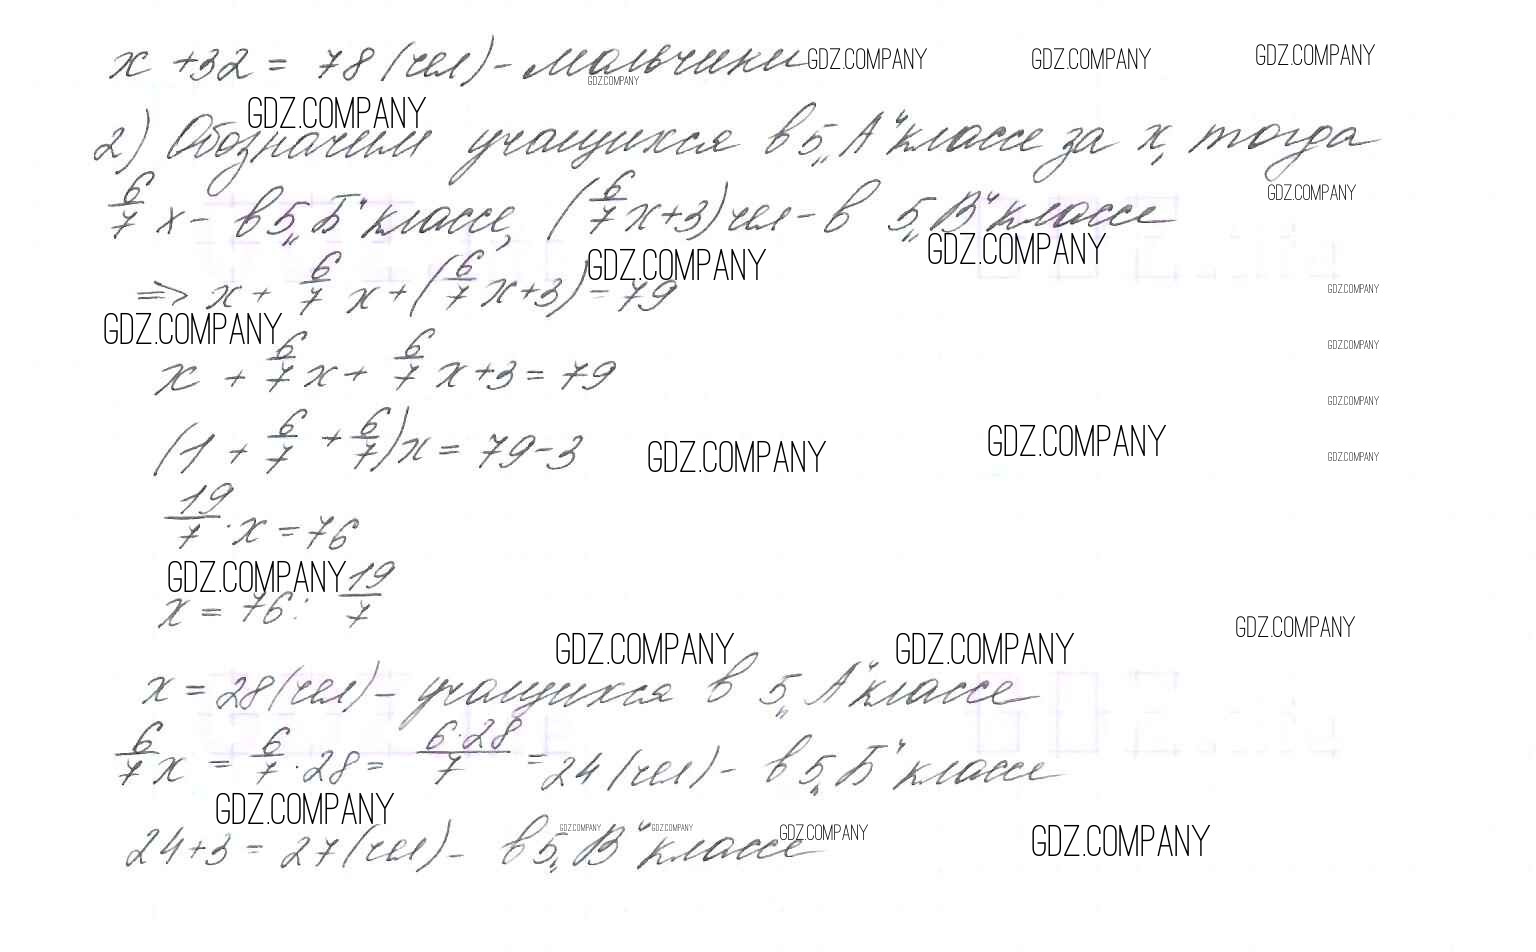 x + 32 = 78 (чел) - мальчики GDZ.COMPANY GDZ.COMPANY GDZ.COMPANY
GDZ.COMPANY
GDZ.COMPANY
2) Обозначим учащихся в 5 „А" классе за x, тогда
6/7 x - в 5 „Б" классе, (6/7 x + 3) чел - в 5 „В" классе GDZ.COMPANY
GDZ.COMPANY GDZ.COMPANY
=> x + 6/7 x + (6/7 x + 3) = 79 GDZ.COMPANY
GDZ.COMPANY GDZ.COMPANY
x + 6/7 x + 6/7 x + 3 = 79
GDZ.COMPANY
(1 + 6/7 + 6/7) x = 79 - 3 GDZ.COMPANY GDZ.COMPANY GDZ.COMPANY
19/7 · x = 76
GDZ.COMPANY
x = 76 : 19/7
GDZ.COMPANY GDZ.COMPANY GDZ.COMPANY
x = 28 (чел) - учащихся в 5 „А" классе
6/7 x = 6/7 · 28 = 6·28/7 = 24 (чел) - в 5 „Б" классе
GDZ.COMPANY
GDZ.COMPANY GDZ.COMPANY GDZ.COMPANY GDZ.COMPANY
24 + 3 = 27 (чел) - в 5 „В" классе